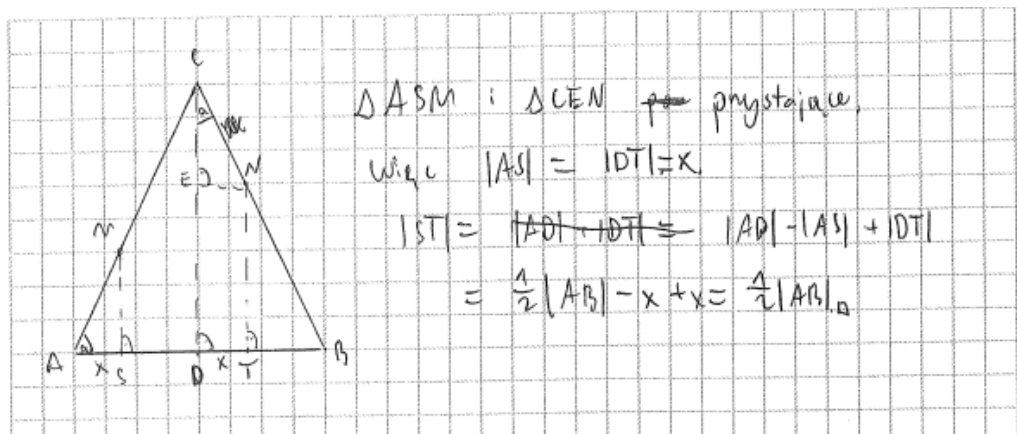 C
a
N
E
M
A
x
S
D
x
T
B
ΔASM i ΔCEN przystające,
więc |AS| = |DT|=x
|ST| = |AD| - |AS| + |DT|
= 1/2 |AB| - x + x = 1/2 |AB|. □